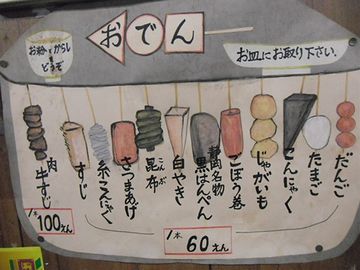 お粉とからし
を
どうぞ
おでん
お皿にお取り下さい。
肉
牛すじ
すじ
糸こんにゃく
さつまあげ
昆布
こんぶ
白やき
静岡名物
黒はんぺん
ごぼう巻
じゃがいも
こんにゃく
たまご
だんご
1本
100えん
1本
60えん